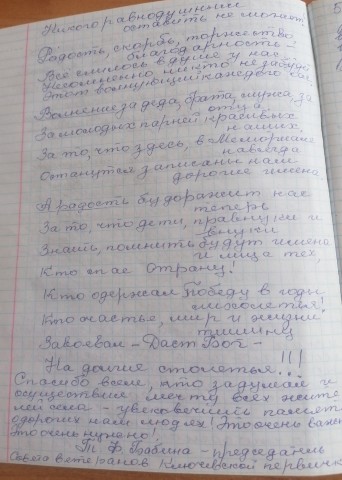 Никого равнодушным
оставить не может
Радость, скорбь, торжество
благодарность -
Все слилось в душе у нас
Несомненно ничто не забудет
Этот волнующий каждого час.
Волненье за деда, брата, мужа, за
отца,
За молодых парней красивых
наших,
За то, что здесь, в Мемориале
навсегда
Останутся записаны нам
дорогие имена
А радость будоражит нас
теперь
За то, что дети, правнуки и
внуки
Знать, помнить будут имена
и лица тех,
Кто спас Страну!
Кто одержал Победу в годы
лихолетья!
Кто счастье, мир и жизни
тишину
Завоевал - Даст Бог -
На долгие столетья!!!
Спасибо всем, кто задумал и
осуществил мечту всех жите
лей села - увековечить память
о дорогих нам людях! Это очень важно
Это очень нужно!
Т. Ф. Бабина - председатель
Совета ветеранов Ключевской первички